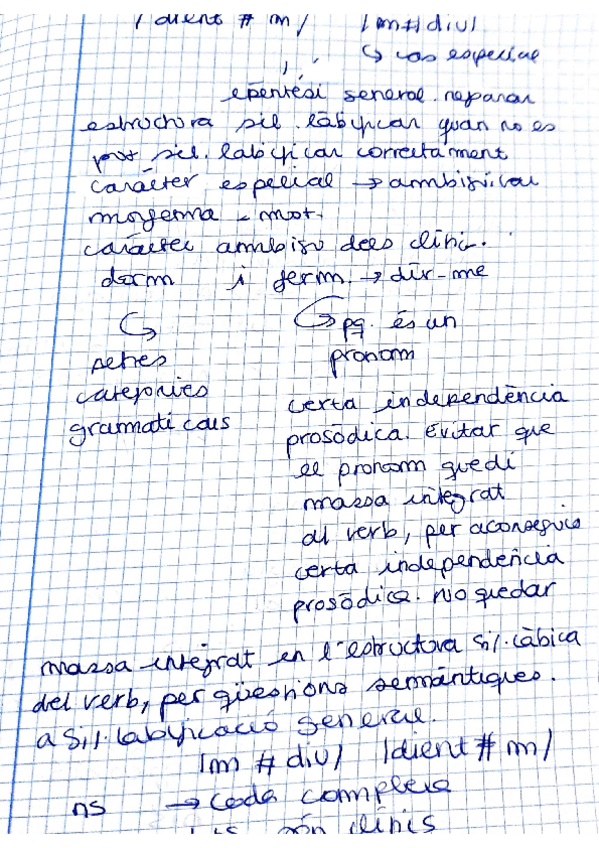 /dient # m/ /m # diu/
↳ cas especial
epèntesi general. reparar
estructura sil·labificar quan no es
pot sil·labificar correctament
caràcter especial → ambigüitat
morfema - mot.
caràcter ambigu dels clític.
dorm i ferm. → dir-me
↳ ↳ pq. és un
altres pronom
categories
gramaticals certa independència
prosòdica. Evitar que
el pronom quedi
massa integrat
al verb, per aconseguir
certa independència
prosòdica. No quedar
massa integrat en l'estructura sil·làbica
del verb, per qüestions semàntiques.
a sil·labificació general.
/m # diu/ /dient # m/
ns → coda complexa
són clítics